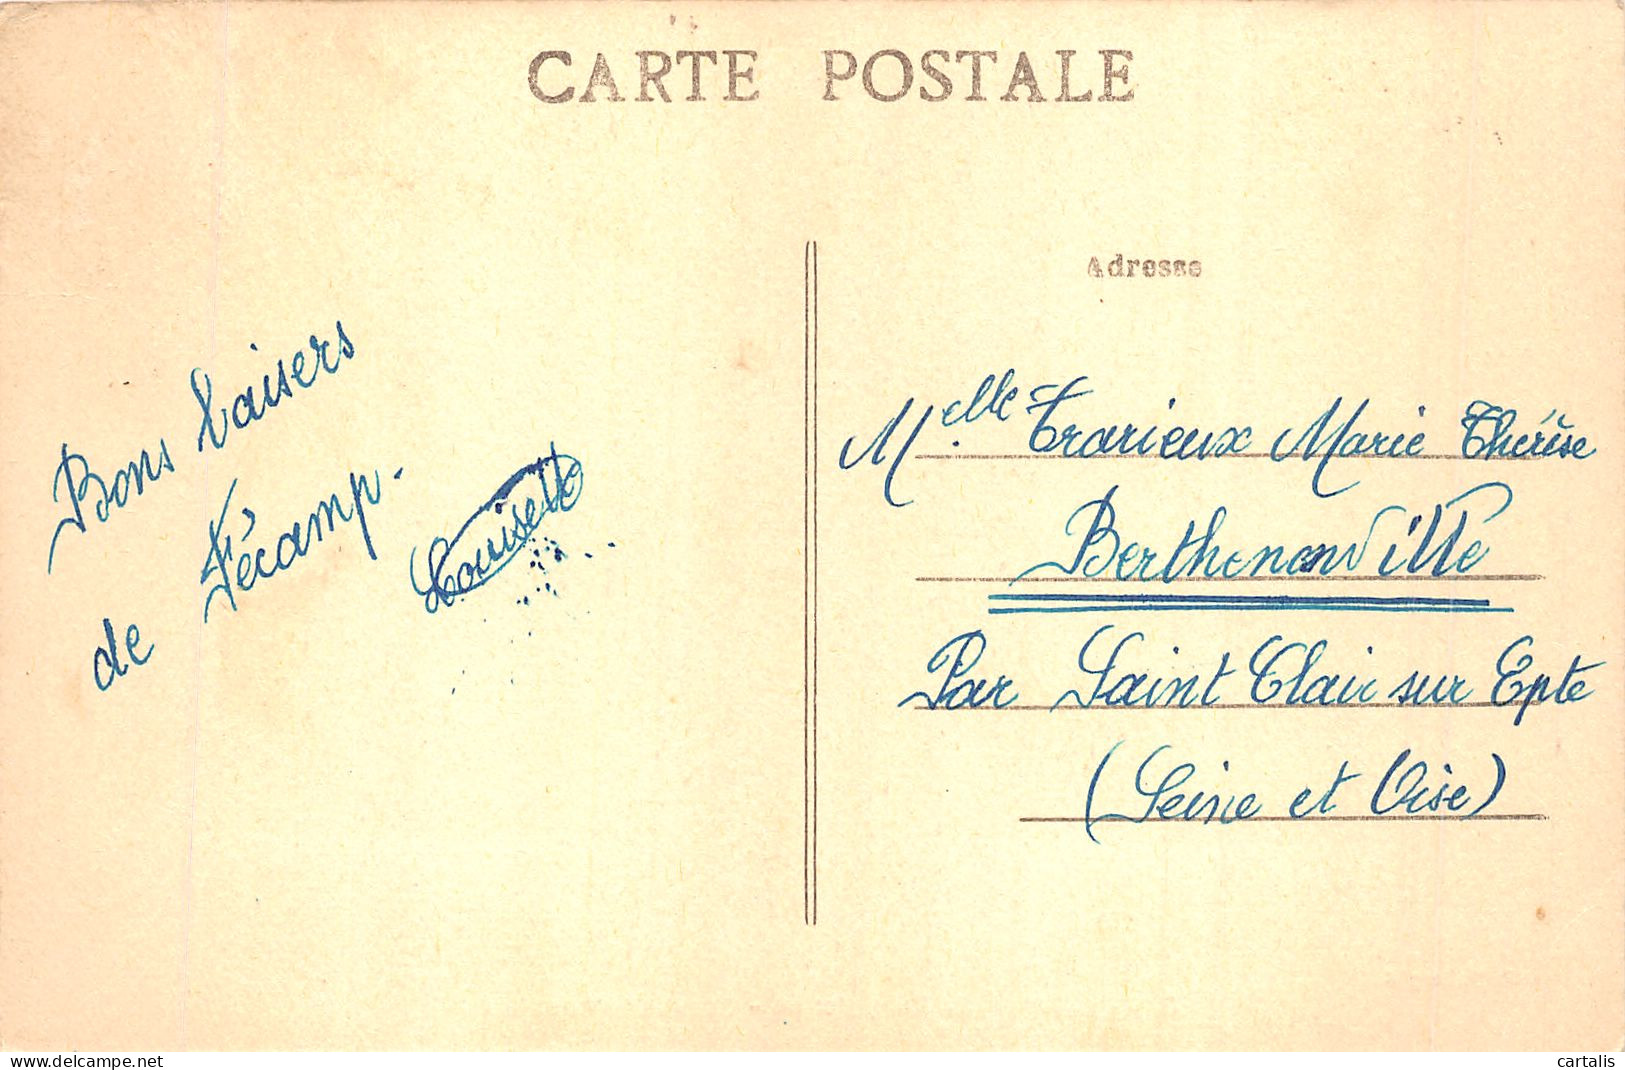 CARTE POSTALE
Bons baisers
de Fécamp.
Louisette
Adresse
Melle Trarieux Marie Thérèse
Berthenonville
Par Saint Clair sur Epte
(Seine et Oise)
www.delcampe.net
cartalis